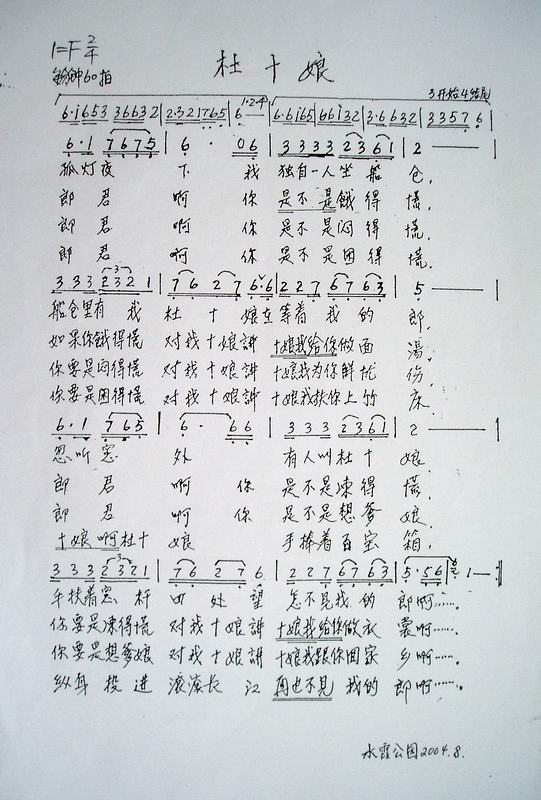 1=F 2/4
每分钟60拍
杜十娘
3开始4结尾
6·i653 36632 | 2·321765 | 6 1·2·4 | 6·6i65 | 66i32 | 3·6632 | 3357 6 |
6·1 7675 | 6 · 06 | 3333 2361 | 2 — |
孤灯夜 下 我 独自一人坐船 仓,
郎君 啊 你 是不是饿得 慌,
郎君 啊 你 是不是闷得 慌,
郎君 啊 你 是不是困得 慌,
333 2321 | 76 27 6·6 | 227 6763 | 5 — |
船仓里有我 杜十娘在 等着我的 郎,
如果你饿得慌 对我十娘讲 十娘我给你做面 汤,
你要是闷得慌 对我十娘讲 十娘我为你解忧 伤,
你要是困得慌 对我十娘讲 十娘我扶你上竹 床,
6·1 765 | 6· 66 | 333 2361 | 2 — |
忽听窗 外 有人叫杜十 娘,
郎君 啊 你 是不是冻得 慌,
郎君 啊 你 是不是想爹 娘,
十娘啊杜十 娘 手捧着百宝 箱,
333 2321 | 76 27 6 | 227 6763 | 5·56 1 — :||
手扶着窗杆 四处望 怎不见我的 郎啊……
你要是冻得慌 对我十娘讲 十娘我给你做衣 裳啊……
你要是想爹娘 对我十娘讲 十娘我跟你回家 乡啊……
纵身投进 滚滚长江 再也不见我的 郎啊……
水霞公园2004.8.